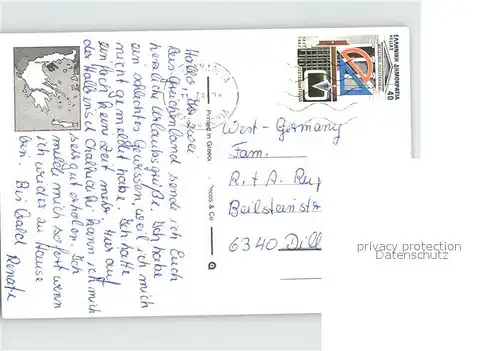 Hallo, Ihr zwei
Aus Griechenland sende ich Euch
herzliche Urlaubsgrüße. Ich habe
ein schlechtes Gewissen, weil ich mich
nicht gemeldet habe. Ich hatte
einfach keine Zeit mehr. Hier auf
der Halbinsel Chalkidiki kann ich mich
sehr gut erholen. Ich
melde mich sofort wenn
ich wieder zu Hause
bin. Bis bald
Renate
Printed in Greece
& Co
ΕΛΛΗΝΙΚΗ ΔΗΜΟΚΡΑΤΙΑ
HELLAS
40
West-Germany
Fam.
R. + A. Rup
Beilsteinst
6340 Dill
privacy protection
Datenschutz